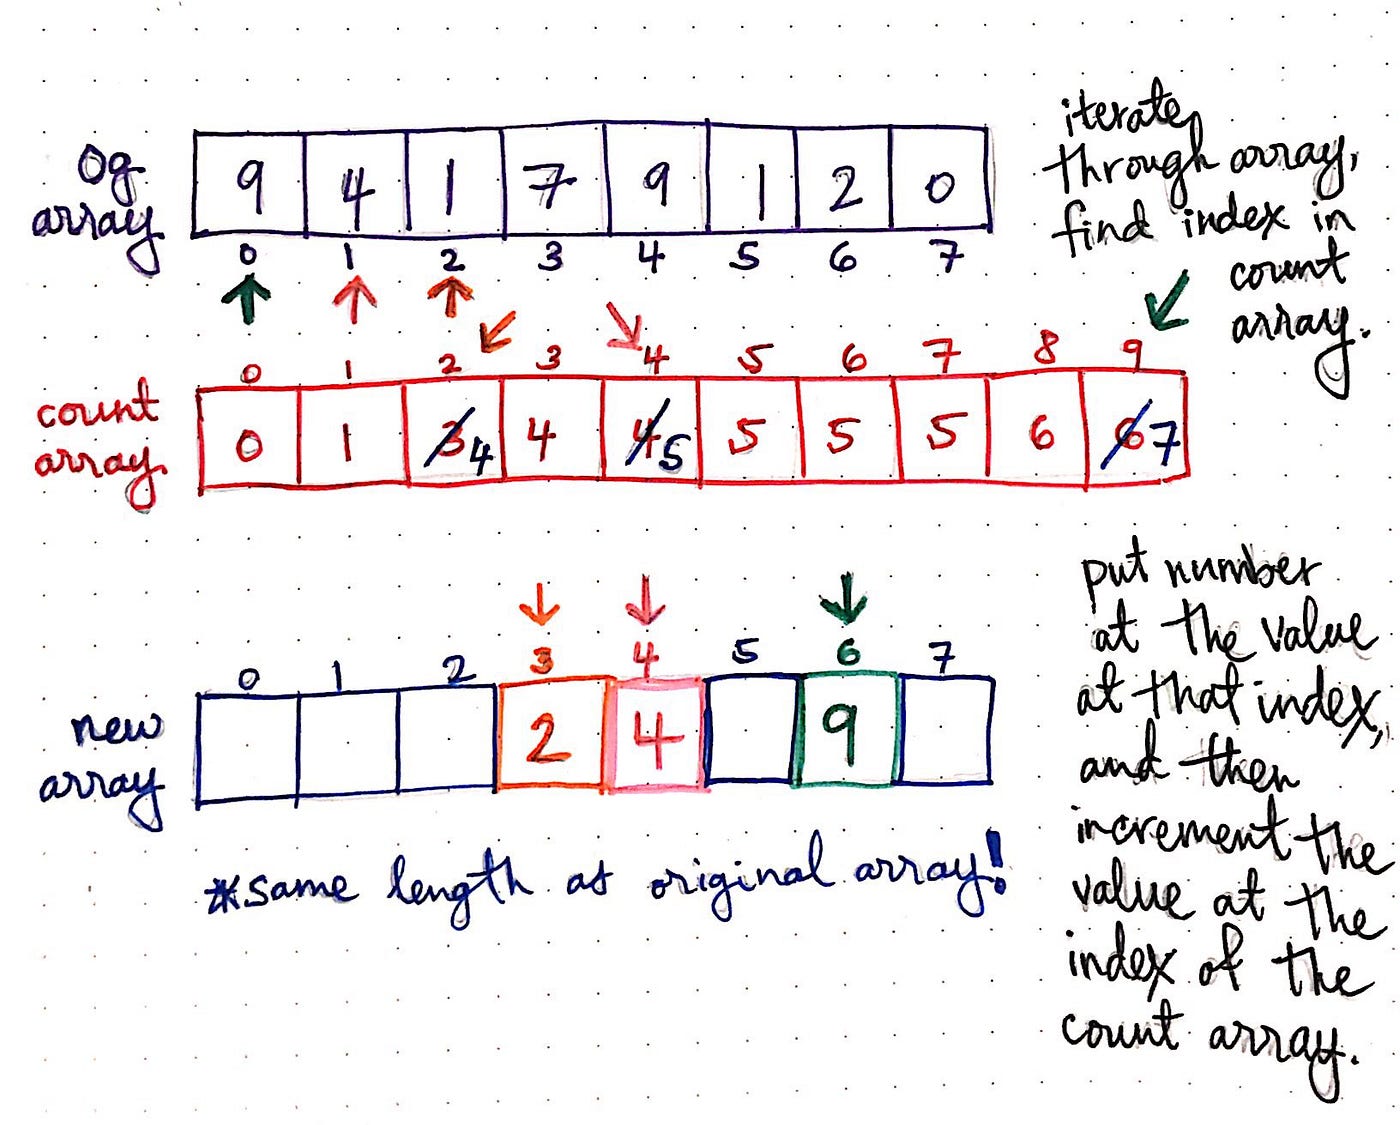 iterate
through array,
find index in
count
array.
og
array
9 4 1 7 9 1 2 0
0 1 2 3 4 5 6 7
0 1 2 3 4 5 6 7 8 9
count
array
0 1 3 4 4 4 5 5 5 5 6 6 7
put number
at the value
at that index,
and then
increment the
value at the
index of the
count array.
0 1 2 3 4 5 6 7
new
array
2 4 9
*same length as original array!